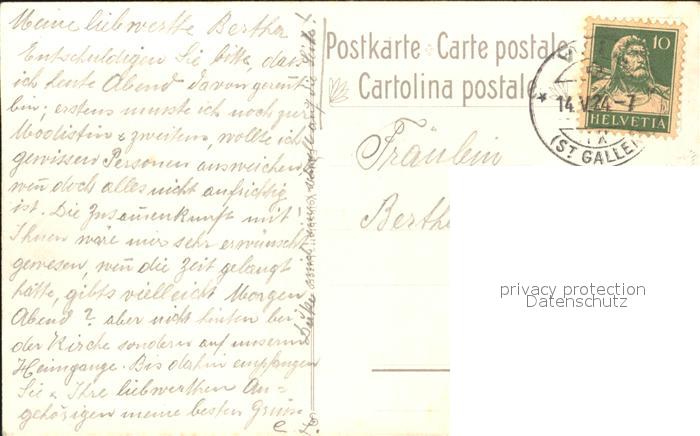 Meine liebwerthe Bertha
Entschuldigen Sie bitte, dass
ich heute Abend davon gerannt
bin; erstens musste ich noch zur
Modistin & zweitens, wollte ich
gewissen Personen ausweichen
weñ doch alles nicht aufrichtig
ist. Die Zusam̃enkunft mit
Ihnen wäre mir sehr erwünscht
gewesen, weñ die Zeit gelangt
hätte, gibts vielleicht Morgen
Abend? aber nicht hinten bei
der Kirche sondern auf unserm
Heimgange. Bis dahin empfangen
Sie & Ihre liebwerthen An=
gehörigen meine besten Grüsse
Bitte auf die Seite!
Postkarte Carte postale
Cartolina postale
10
HELVETIA
14.V.24-7
IX
(ST GALLEN
Fräulein
Berth
privacy protection
Datenschutz